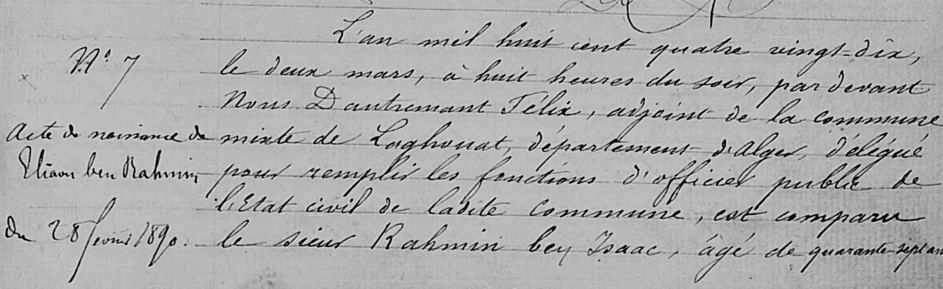 N° 7
Acte de naissance de
Eliaou ben Rahmin
du 28 février 1890.
L'an mil huit cent quatre vingt-dix,
le deux mars, à huit heures du soir, par devant
Nous Dautremant Félix, adjoint de la commune
mixte de Laghouat, département d'Alger, délégué
pour remplir les fonctions d'officier public de
l'Etat civil de ladite commune, est comparu
le sieur Rahmin ben Isaac, âgé de quarante-sept an